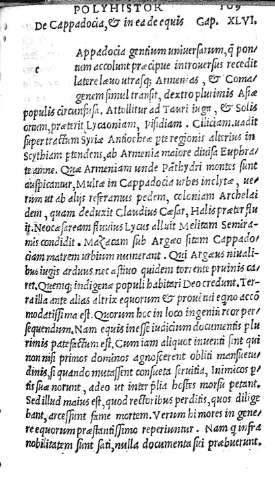 POLYHISTOR 109
De Cappadocia, & in ea de equis Cap. XLVI.
c
Appadocia gentium universarum, q̃ pon
tum accolunt præcipue introrsus recedit
latere lævo utrasq; Armenias, & Coma
genem simul transit, dextro plurimis Asiæ
populis circunfusa. Attollitur ad Tauri iuga, & Solis
ortum, præterit Lycaoniam, Pisidiam. Ciliciam. uadit
super tractum Syriæ Antiochræ pte regionis alterius in
Scythiam ptendens, ab Armenia maiore divisa Euphra
te amne. Quæ Armeniam unde Pathydri montes sunt
auspicantur, Multæ in Cappadocia urbes inclytæ, ue
rum ut ab alijs referamus pedem, coloniam Archelai
dem, quam deduxit Claudius Cæsar, Halis præter flu
it. Neocæsaream fluvius Lycus alluit Melitam Semira
mis condidit. Mazacam sub Argæo sitam Cappado
ciam matrem urbium numerant. Qui Argæus niuali
bus iugis arduus nec æstiuo quidem torrente pruinis ca
ret. Quemq; indigenæ populi habitari Deo credunt. Ter
ra illa ante alias altrix equorum & proventui equino acco
modatissima est. Quorum hoc in loco ingeniũ reor per
sequendum. Nam equis inesse iudicium documentis plu
rimis patefactum est, Cum iam aliquot inuenti sint qui
non nisi primos dominos agnoscerent obliti mansuetu
dinis, si quando mutassent consueta seruitia, Inimicos p̃
tis suæ norunt, adeo ut inter p̃lia hostes morsu petant.
Sed illud maius est, quod rectoribus perditis, quos dilige
bant, arcessunt fame mortem. Verum hi mores in gene
re equorum præstantissimo reperiuntur. Nam q̃ infra
nobilitatem sunt sati, nulla documenta sui præbuerunt.